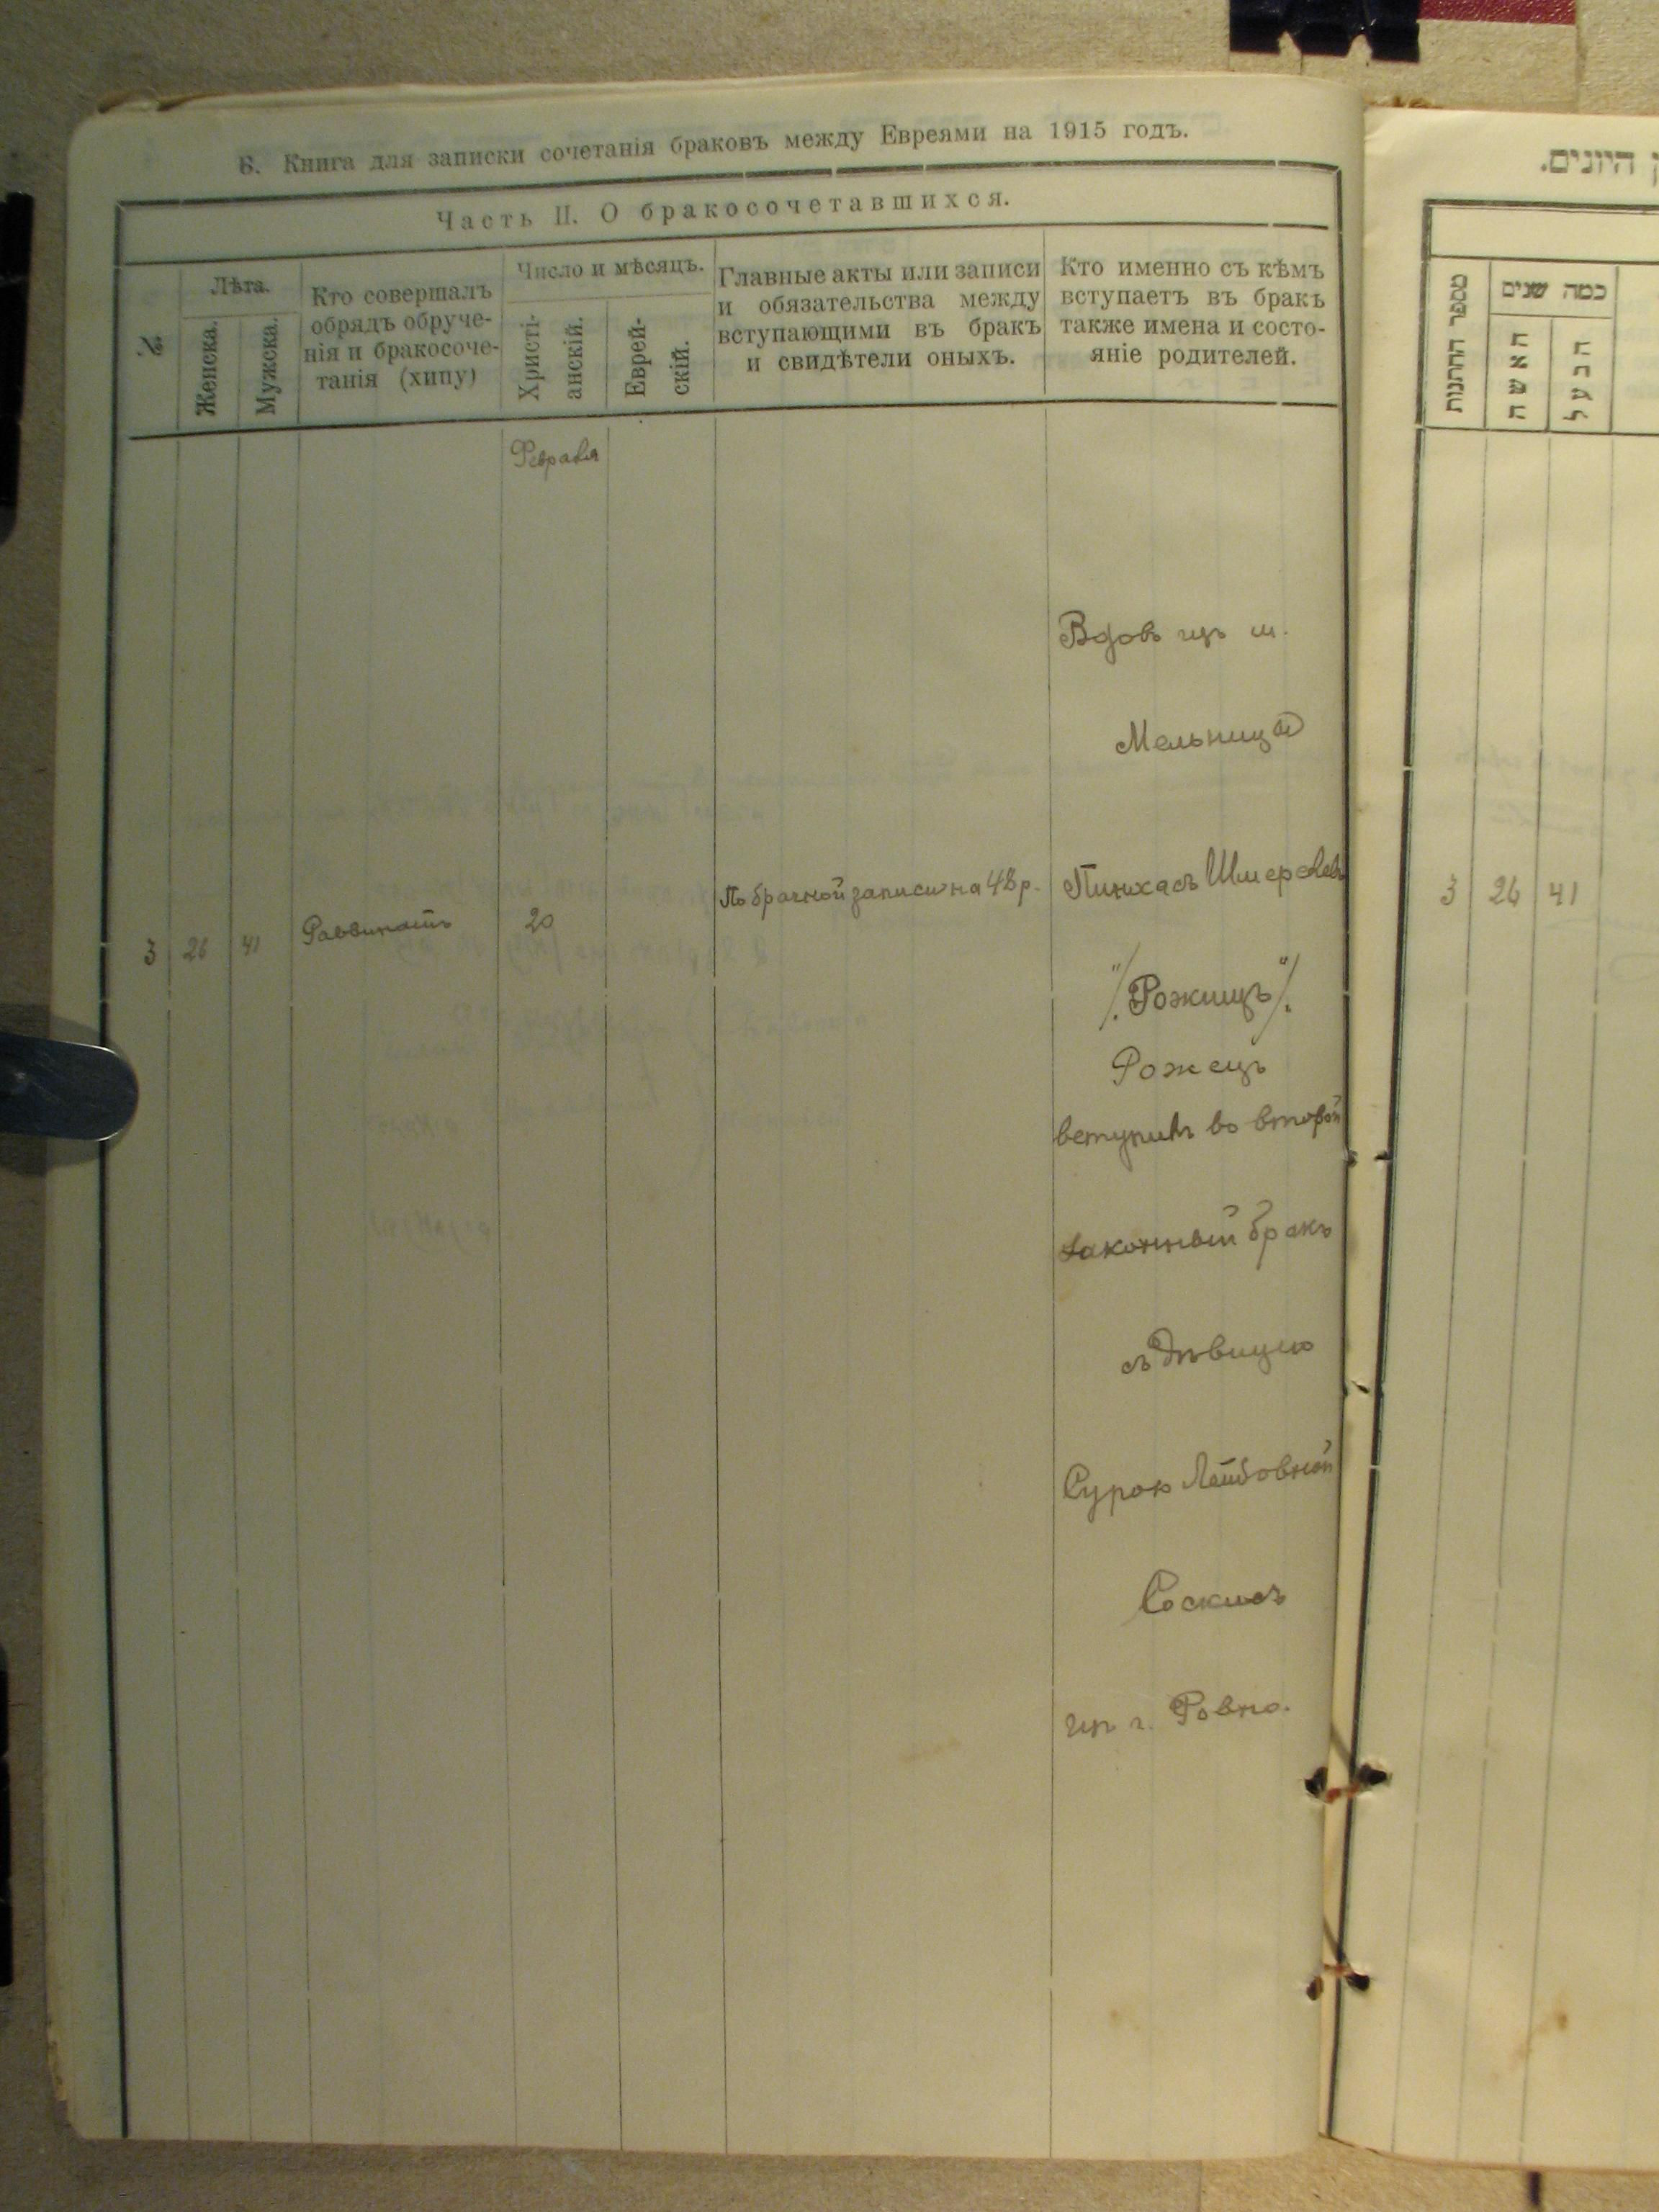 Б. Книга для записки сочетанія браковъ между Евреями на 1915 годъ.
Часть II. О бракосочетавшихся.
№
Лѣта.
Женска.
Мужска.
Кто совершалъ
обрядъ обруче-
нія и бракосоче-
танія (хипу)
Число и мѣсяцъ.
Христі-
анскій.
Еврей-
скій.
Главные акты или записи
и обязательства между
вступающими въ бракъ
и свидѣтели оныхъ.
Кто именно съ кѣмъ
вступаетъ въ бракъ
также имена и состо-
яніе родителей.
Февраля
Вдовецъ м.
Мельницы
3 26 41 Раввинатъ 20 По брачной записи на 48 р. Пинхасъ Шмерелевъ
/. "Рожищъ" /.
Рожецъ
вступилъ во второй
законный бракъ
съ дѣвицею
Сурою Лейбовной
Соскисъ
изъ г. Ровно.
היונים.
מספר החתונות
כמה שנים
האשה
הבעל
3 26 41